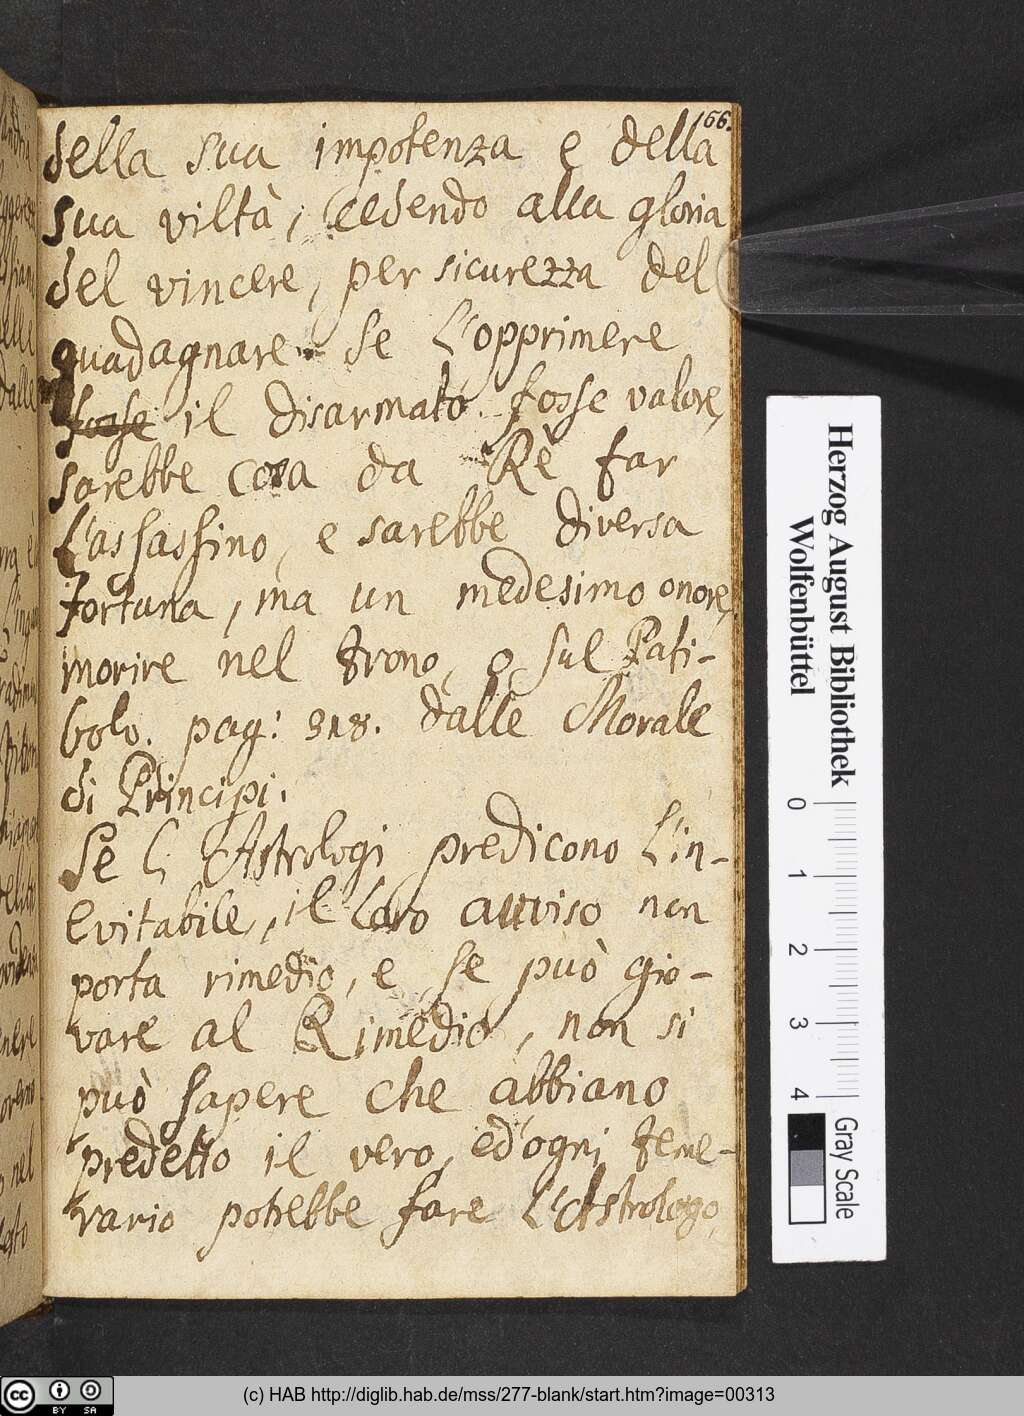 166.
della sua impotenza e della
sua viltà, cedendo alla gloria
del vincere, per sicurezza del
guadagnare. Se L'opprimere
fosse il disarmato fosse valore,
sarebbe cosa da Rè far
L'assassino, e sarebbe diversa
fortuna, ma un medesimo onore,
morire nel trono, o sul Pati-
bolo. pag: 318. dalle Morale
di Principi.
Se l'i Astrologi predicono L'in-
evitabile, il loro avviso non
porta rimedio, e se può gio-
vare al Rimedio, non si
può sapere che abbiano
predetto il vero, ed'ogni teme-
rario potrebbe fare L'Astrologo,
Herzog August Bibliothek
Wolfenbüttel
0 1 2 3 4
Gray Scale
cc BY SA
(c) HAB http://diglib.hab.de/mss/277-blank/start.htm?image=00313